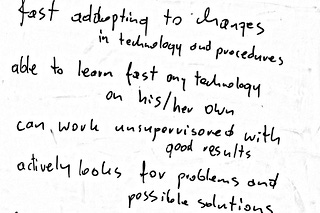 fast addopting to changes
in technology and procedures
able to learn fast any technology
on his/her own
can work unsupervisored with
good results
actively looks for problems and
possible solutions